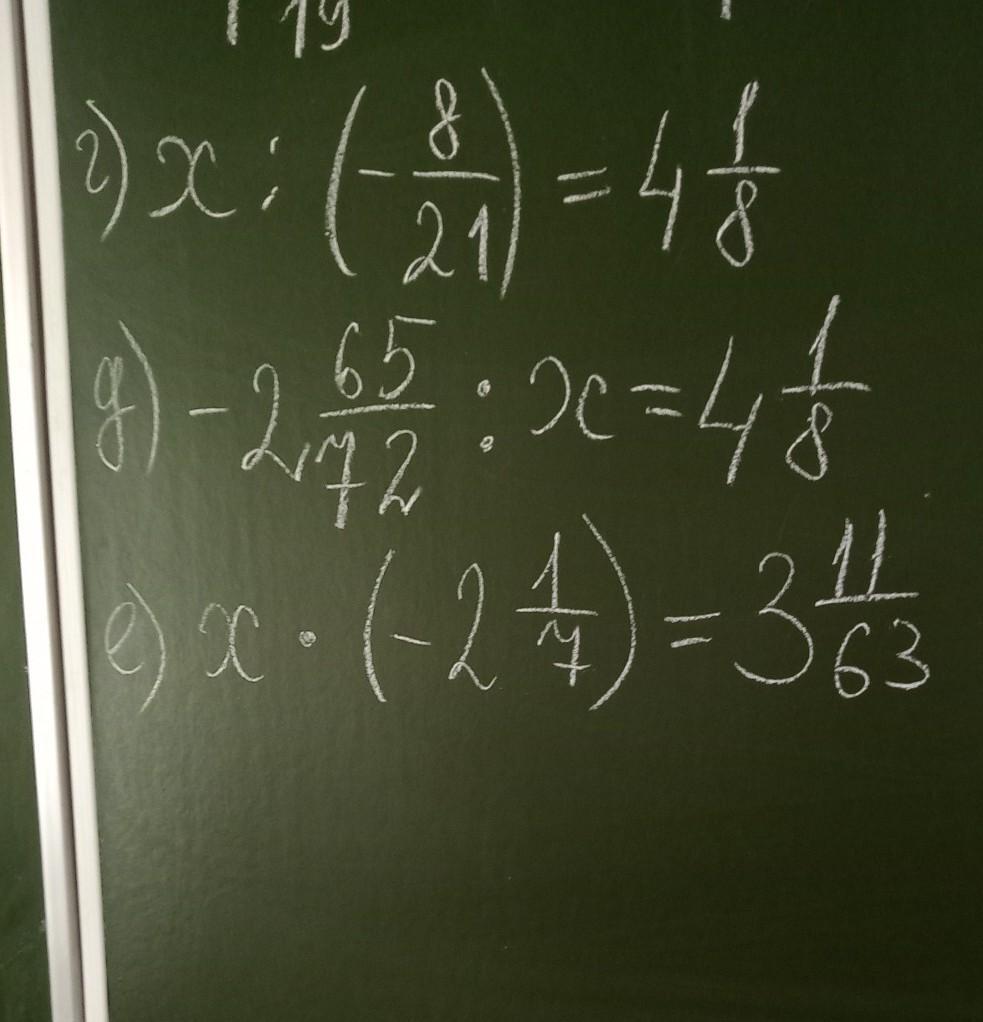 19
г) x : (-8/21) = 4 1/8
д) -2 65/72 : x = 4 1/8
е) x · (-2 1/7) = 3 11/63